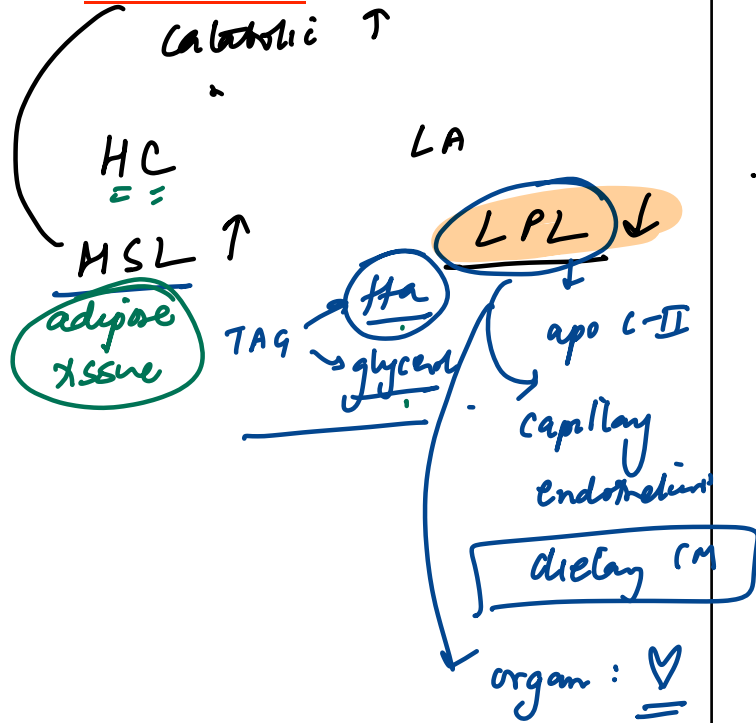 Catabolic ↑
HC
LA
HSL ↑
LPL ↓
adipose
tissue
TAG
ffa
glycerol
apo C-II
capillary
endothelium
dietary CM
organ :